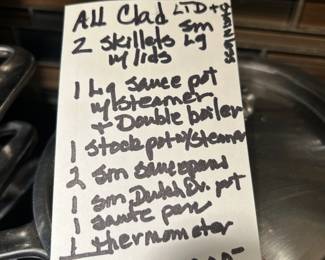 All Clad LTD +
2 skillets sm
w/lids Lg
1 Lg sauce pot
w/steamer
+ Double boiler
1 stock pot w/steamer
2 sm saucepans
1 sm Dutch Ov. pot
1 saute pan
1 thermometer